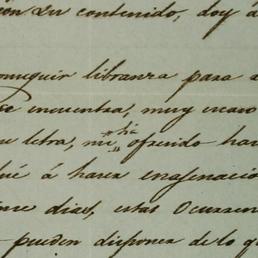 ion su contenido, doy á
onseguir libranza para a
se encuentra, muy escaso
su letra, mi tio ofreciendo har
ué á hacer enagenacio
ince dias, estas Ocurren
pueden disponer de lo q